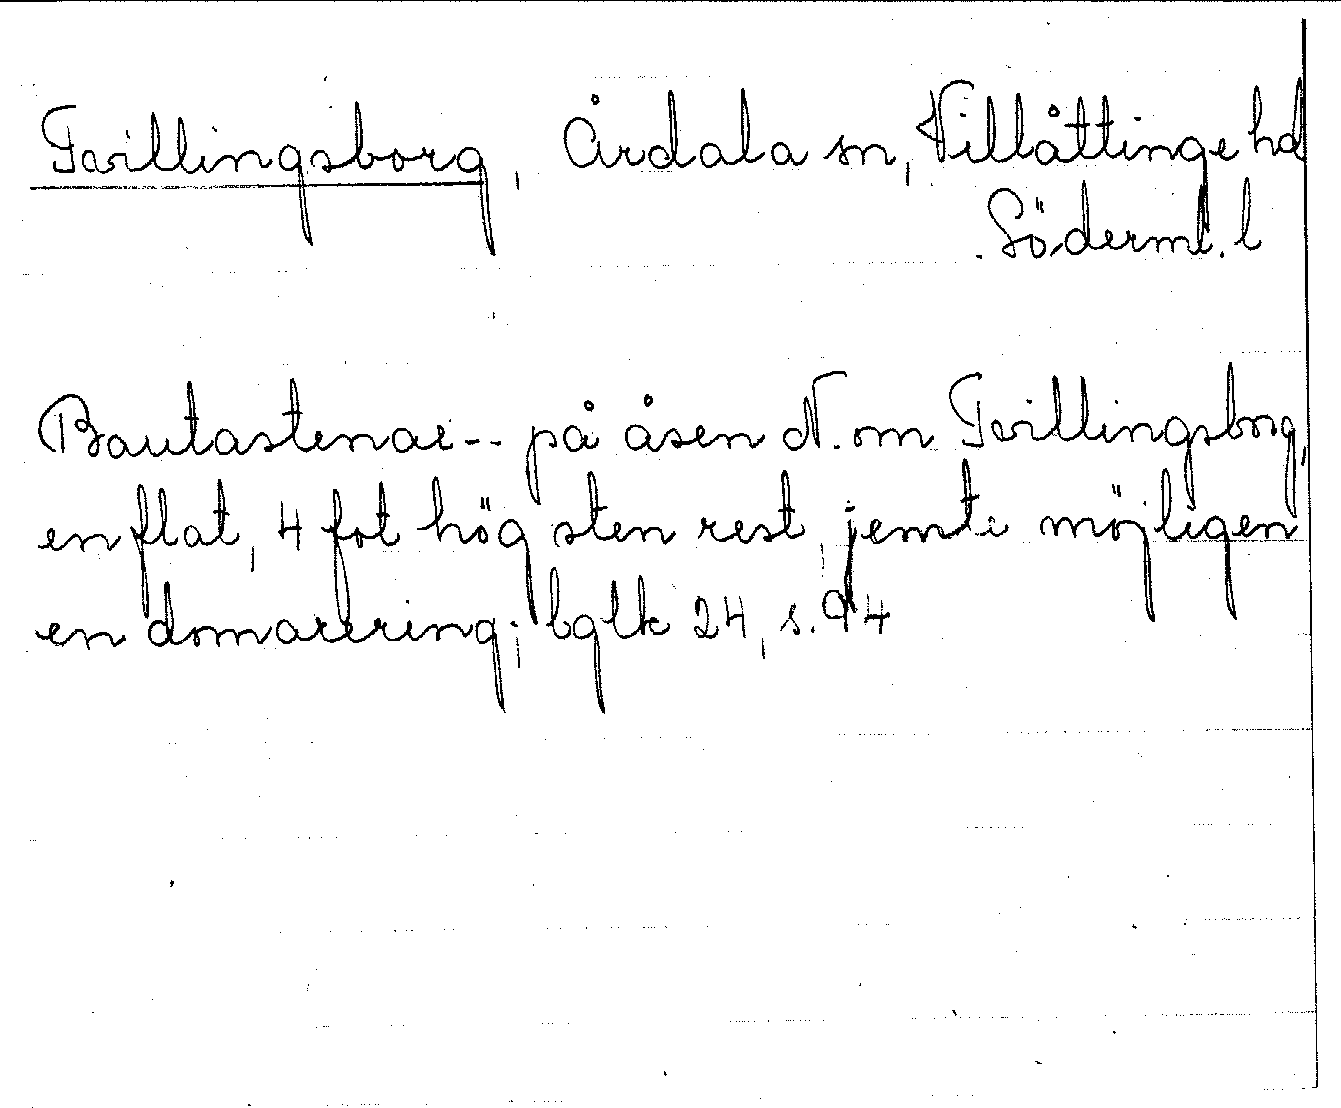 Tvillingsborg, Årdala sn, Villåttinge hd
Söderml. l
Bautastenar -- på åsen N. om Tvillingsborg,
en flat, 4 fot hög sten rest, jemte möjligen
en domarering; bglk 24, s. 94